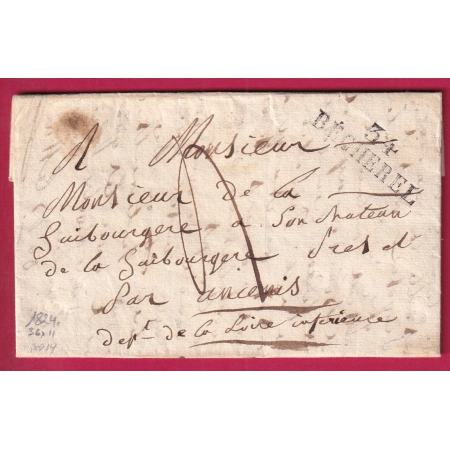 34
BÉCHEREL
A Monsieur
Monsieur de la
Guibourgere a Son chateau
de la Guibourgere Pres et
Par ancenis
dept de la Loire inferieure
1824